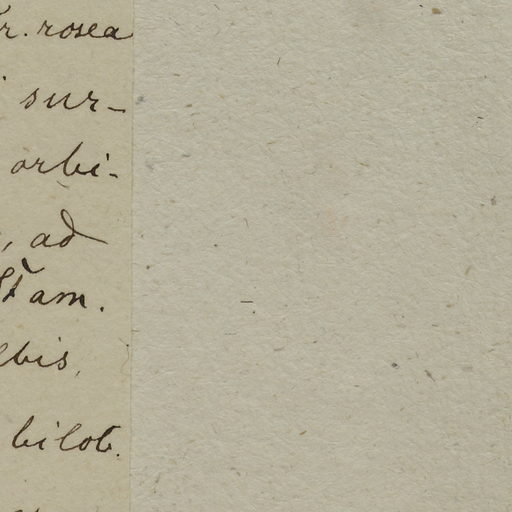 r. rosea
sur-
orbi-
, ad
Stam.
bis,
bilob.